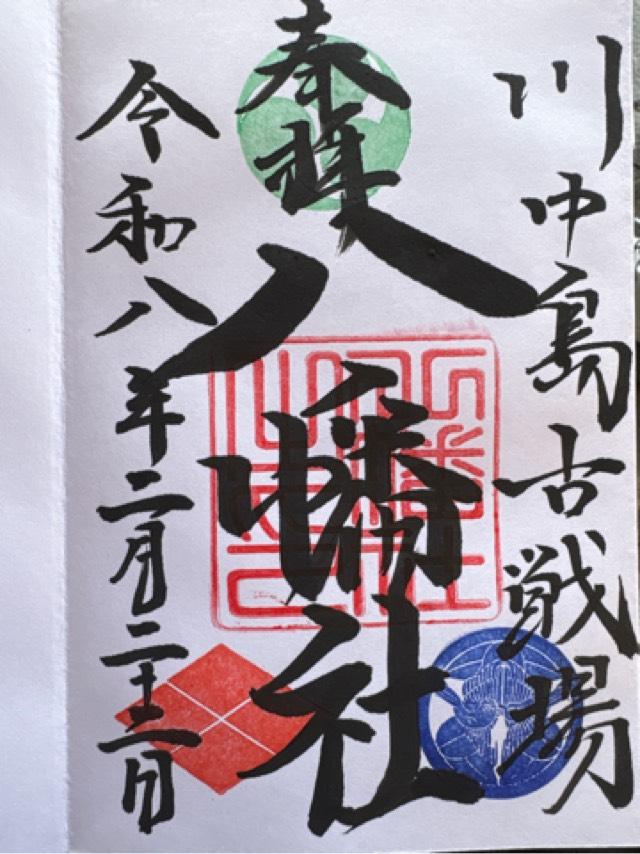 川中島古戦場
奉拝
八幡社
令和八年二月二十二日